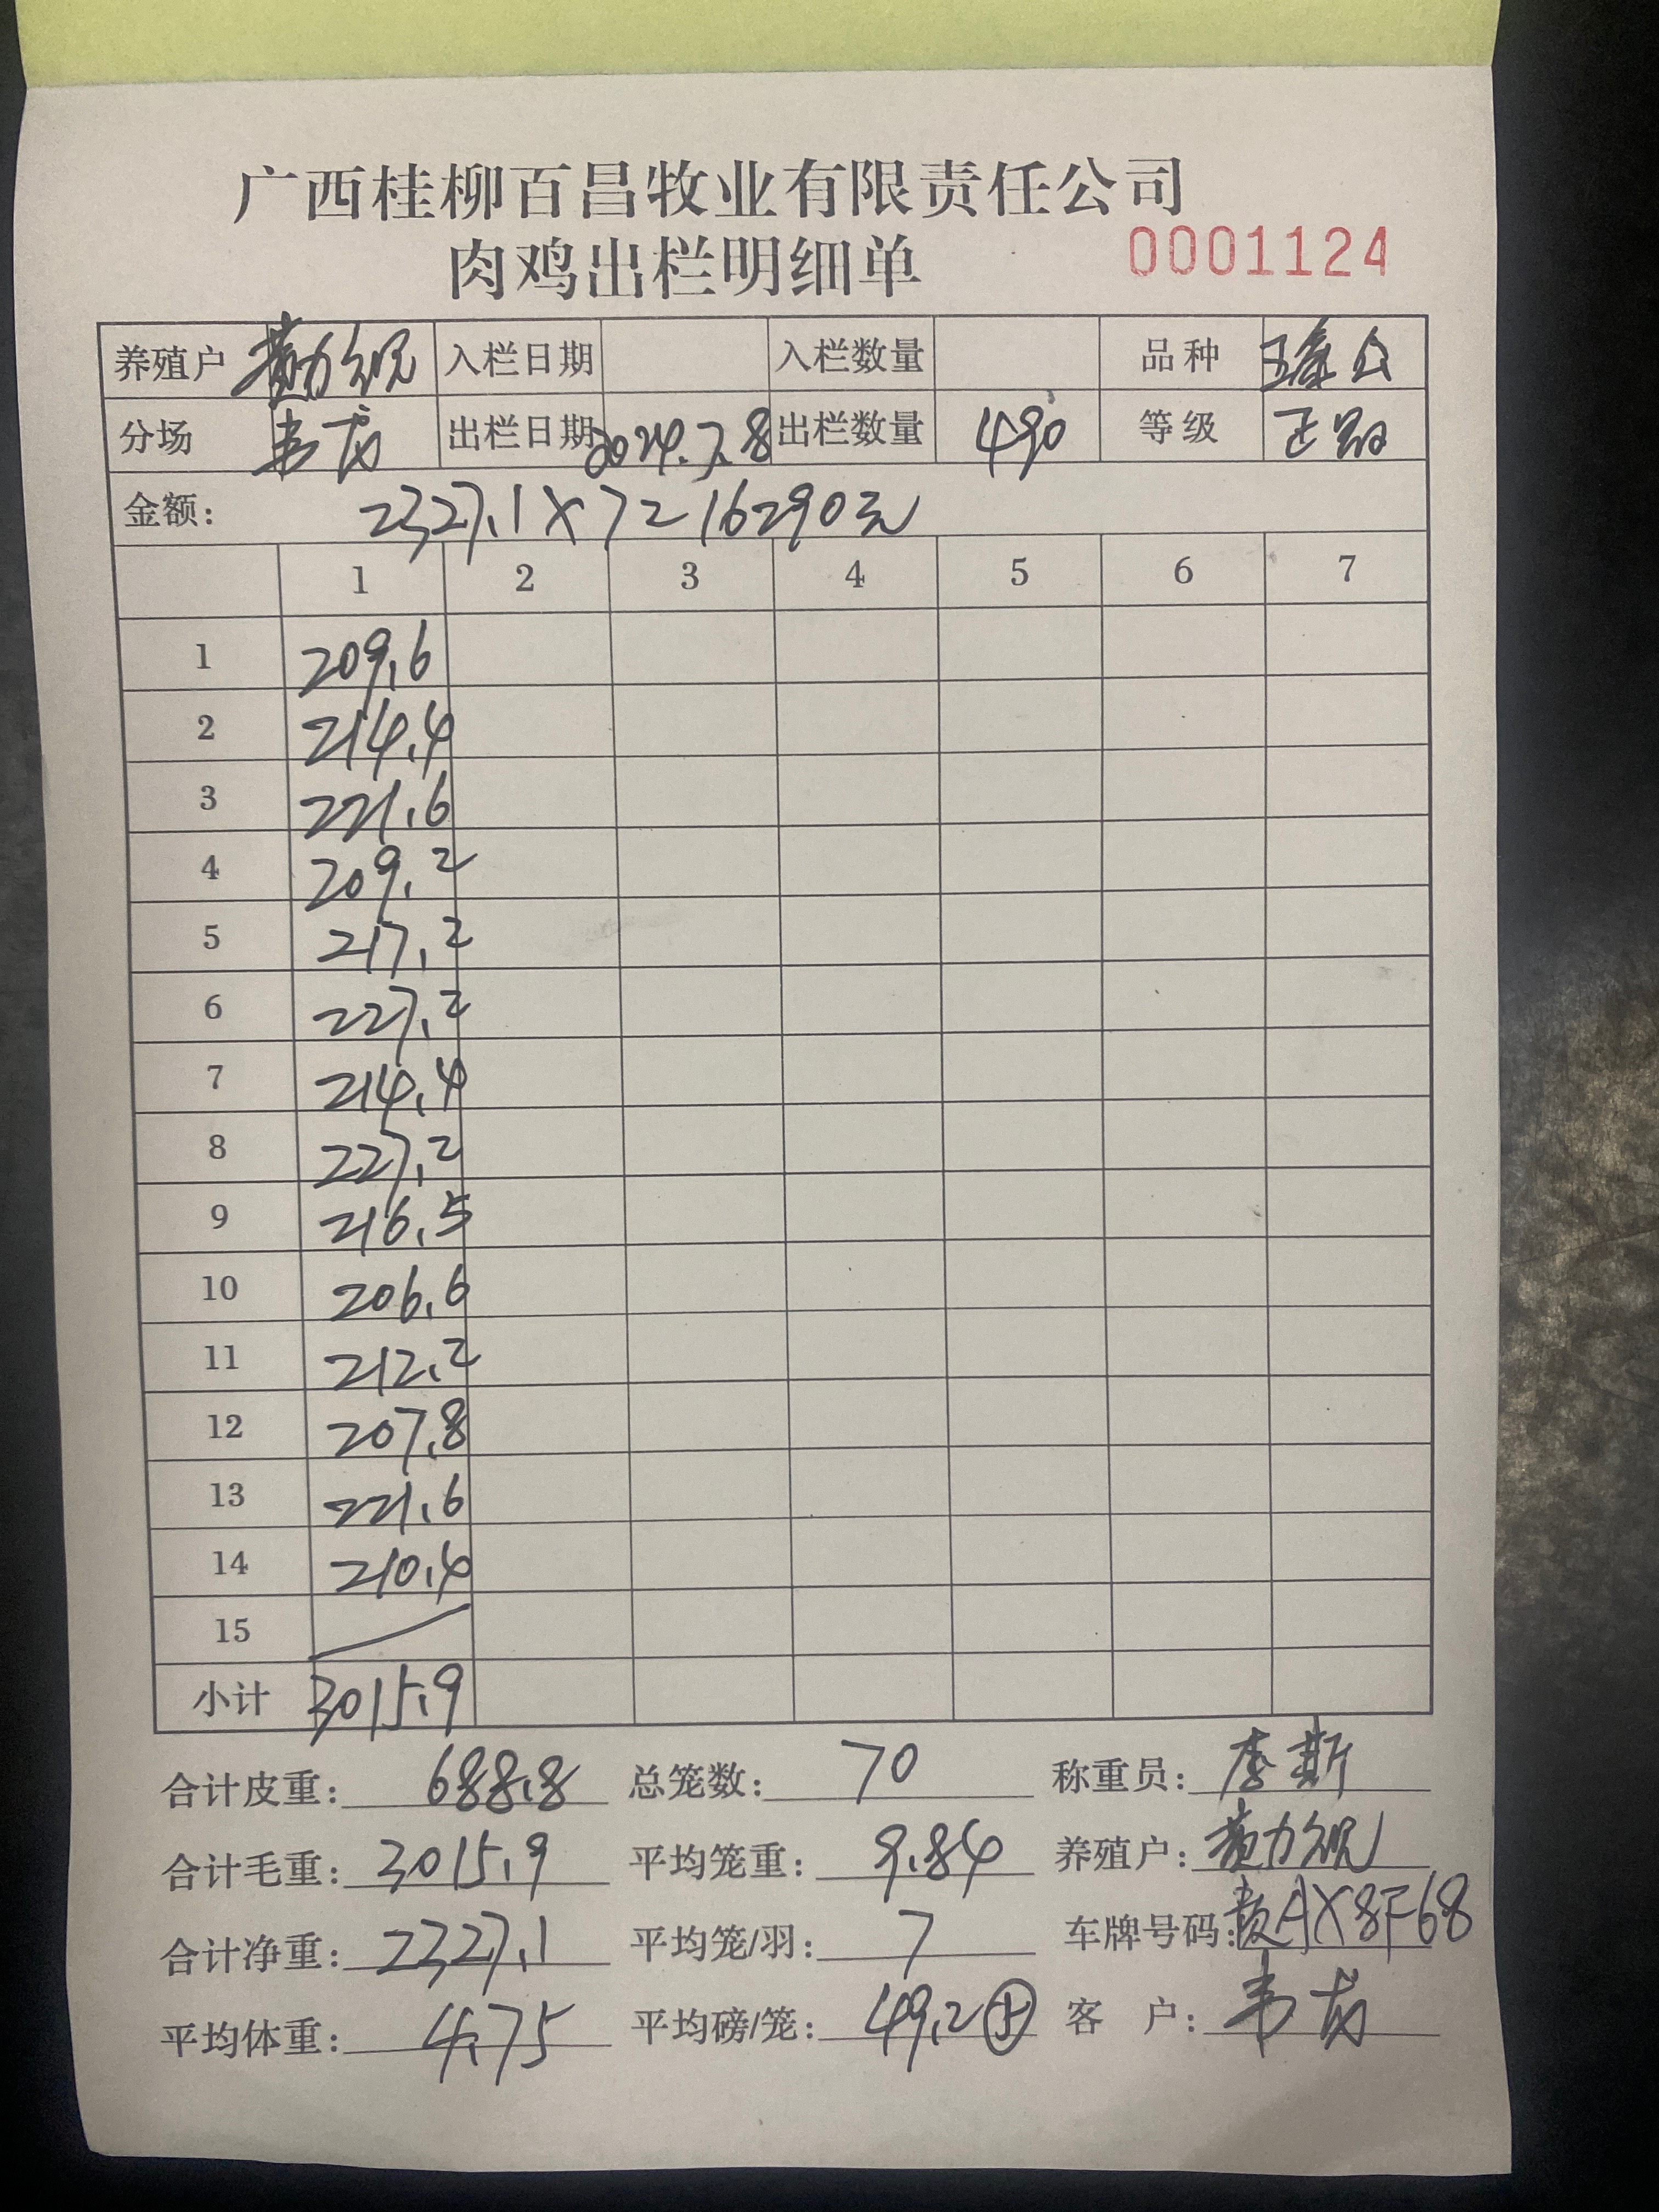 广西桂柳百昌牧业有限责任公司
肉鸡出栏明细单 0001124
养殖户 入栏日期 入栏数量 品种
分场 韦龙 出栏日期 2024.7.8 出栏数量 490 等级 正品
金额: 2327.1×7=16290元
1 2 3 4 5 6 7
1 209.6
2 214.4
3 221.6
4 209.2
5 217.2
6 227.2
7 214.4
8 227.2
9 216.5
10 206.6
11 212.2
12 207.8
13 221.6
14 210.4
15
小计 3015.9
合计皮重: 688.8 总笼数: 70 称重员: 李斯
合计毛重: 3015.9 平均笼重: 9.84 养殖户:
合计净重: 2327.1 平均笼/羽: 7 车牌号码: AX8F68
平均体重: 4.75 平均磅/笼: 49.2 客 户: 韦龙